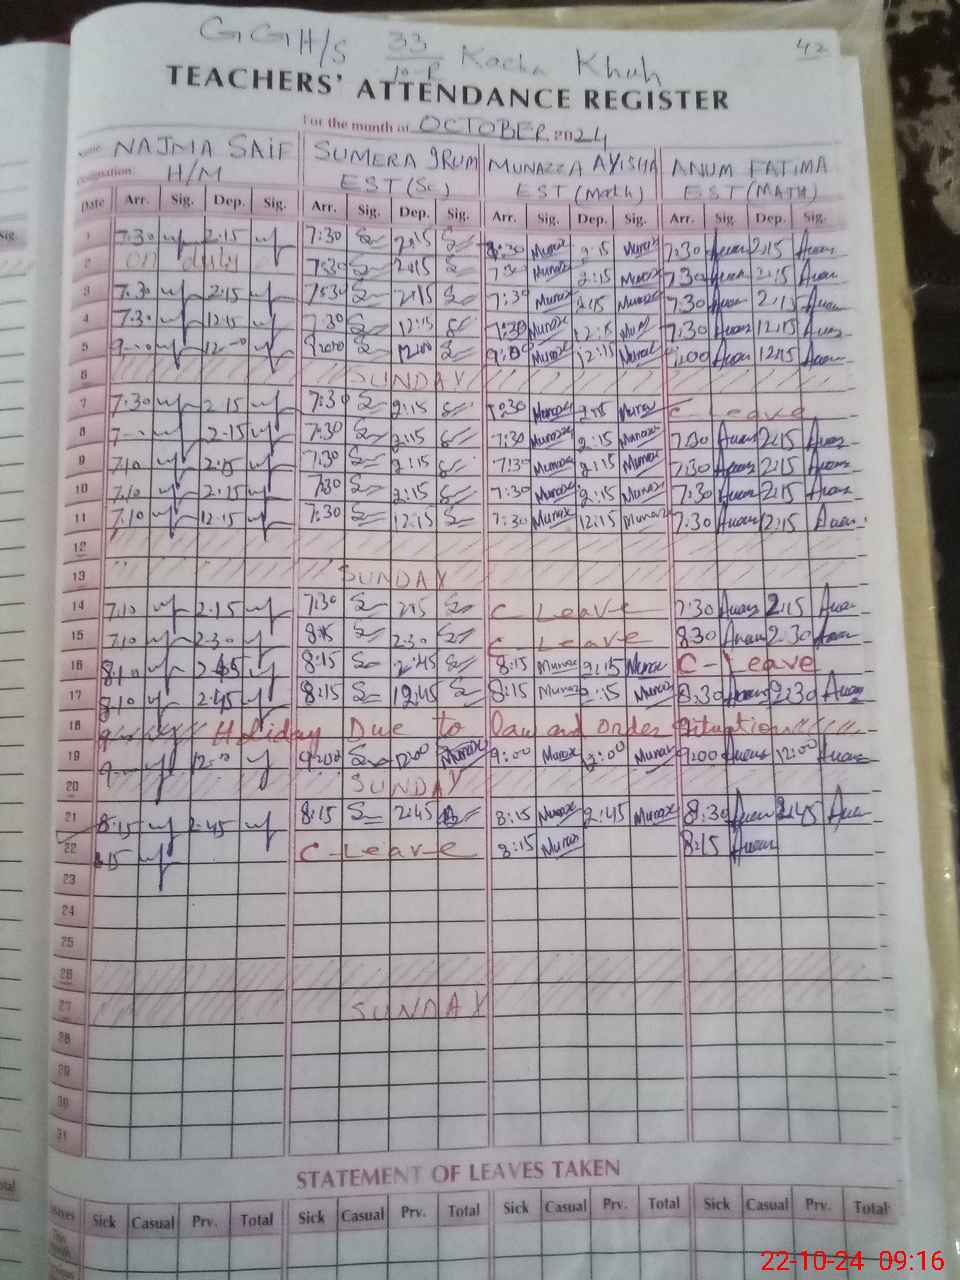 42
GGH/S 33/10-R Kacha Khuh
TEACHERS' ATTENDANCE REGISTER
For the month of OCTOBER 2024
Name NAJMA SAIF SUMERA IRUM MUNAZZA AYISHA ANUM FATIMA
Designation H/M EST (Sc) EST (Math) EST (MATH)
Date Arr. Sig. Dep. Sig. Arr. Sig. Dep. Sig. Arr. Sig. Dep. Sig. Arr. Sig. Dep. Sig.
1 7.30 2.15 7:30 2:15 8:30 Munaz 2:15 Munaz 7:30 Anum 2:15 Anum
2 on duty 7:30 2:15 7:30 Munaz 2:15 Munaz 7:30 Anum 2:15 Anum
3 7.30 2.15 7:30 2:15 7:30 Munaz 2:15 Munaz 7:30 Anum 2:15 Anum
4 7.30 12.15 7:30 12:15 7:30 Munaz 12:15 Munaz 7:30 Anum 12:15 Anum
5 9-0 12-0 9:00 12:00 9:00 Munaz 12:15 Munaz 9:00 Anum 12:15 Anum
6 SUNDAY
7 7.30 2.15 7:30 2:15 7:30 Munaz 2:15 Munaz C-Leave
8 7-- 2.15 7:30 2:15 7:30 Munaz 2:15 Munaz 7:30 Anum 2:15 Anum
9 7.10 2.15 7:30 2:15 7:30 Munaz 2:15 Munaz 7:30 Anum 2:15 Anum
10 7.10 2.15 7:30 2:15 7:30 Munaz 2:15 Munaz 7:30 Anum 2:15 Anum
11 7.10 12.15 7:30 12:15 7:30 Munaz 12:15 Munaz 7:30 Anum 12:15 Anum
12
13 SUNDAY
14 7.10 2.15 7:30 2:15 C-Leave 7:30 Anum 2:15 Anum
15 7.10 2.30 2:30 C-Leave 8:30 Anum 2:30 Anum
16 8.10 2.45 8:15 2:45 8:15 Munaz 2:15 Munaz C-Leave
17 8.10 2.45 8:15 12:45 8:15 Munaz 2:15 Munaz 8:30 Anum 2:30 Anum
18 Holiday Due to law and order situation
19 9-- 12-0 9:00 12:00 Munaz 9:00 Munaz 12:00 Munaz 9:00 Anum 12:00 Anum
20 SUNDAY
21 8:15 2.45 8:15 2:45 8:15 Munaz 2:45 Munaz 8:30 Anum 2:45 Anum
22 8.15 C-Leave 8:15 Munaz 8:15 Anum
23
24
25
26
27 SUNDAY
28
29
30
31
STATEMENT OF LEAVES TAKEN
Leaves Sick Casual Prv. Total Sick Casual Prv. Total Sick Casual Prv. Total Sick Casual Prv. Total
22-10-24 09:16